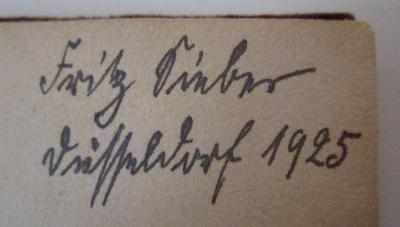 Fritz Sieber
Düsseldorf 1925